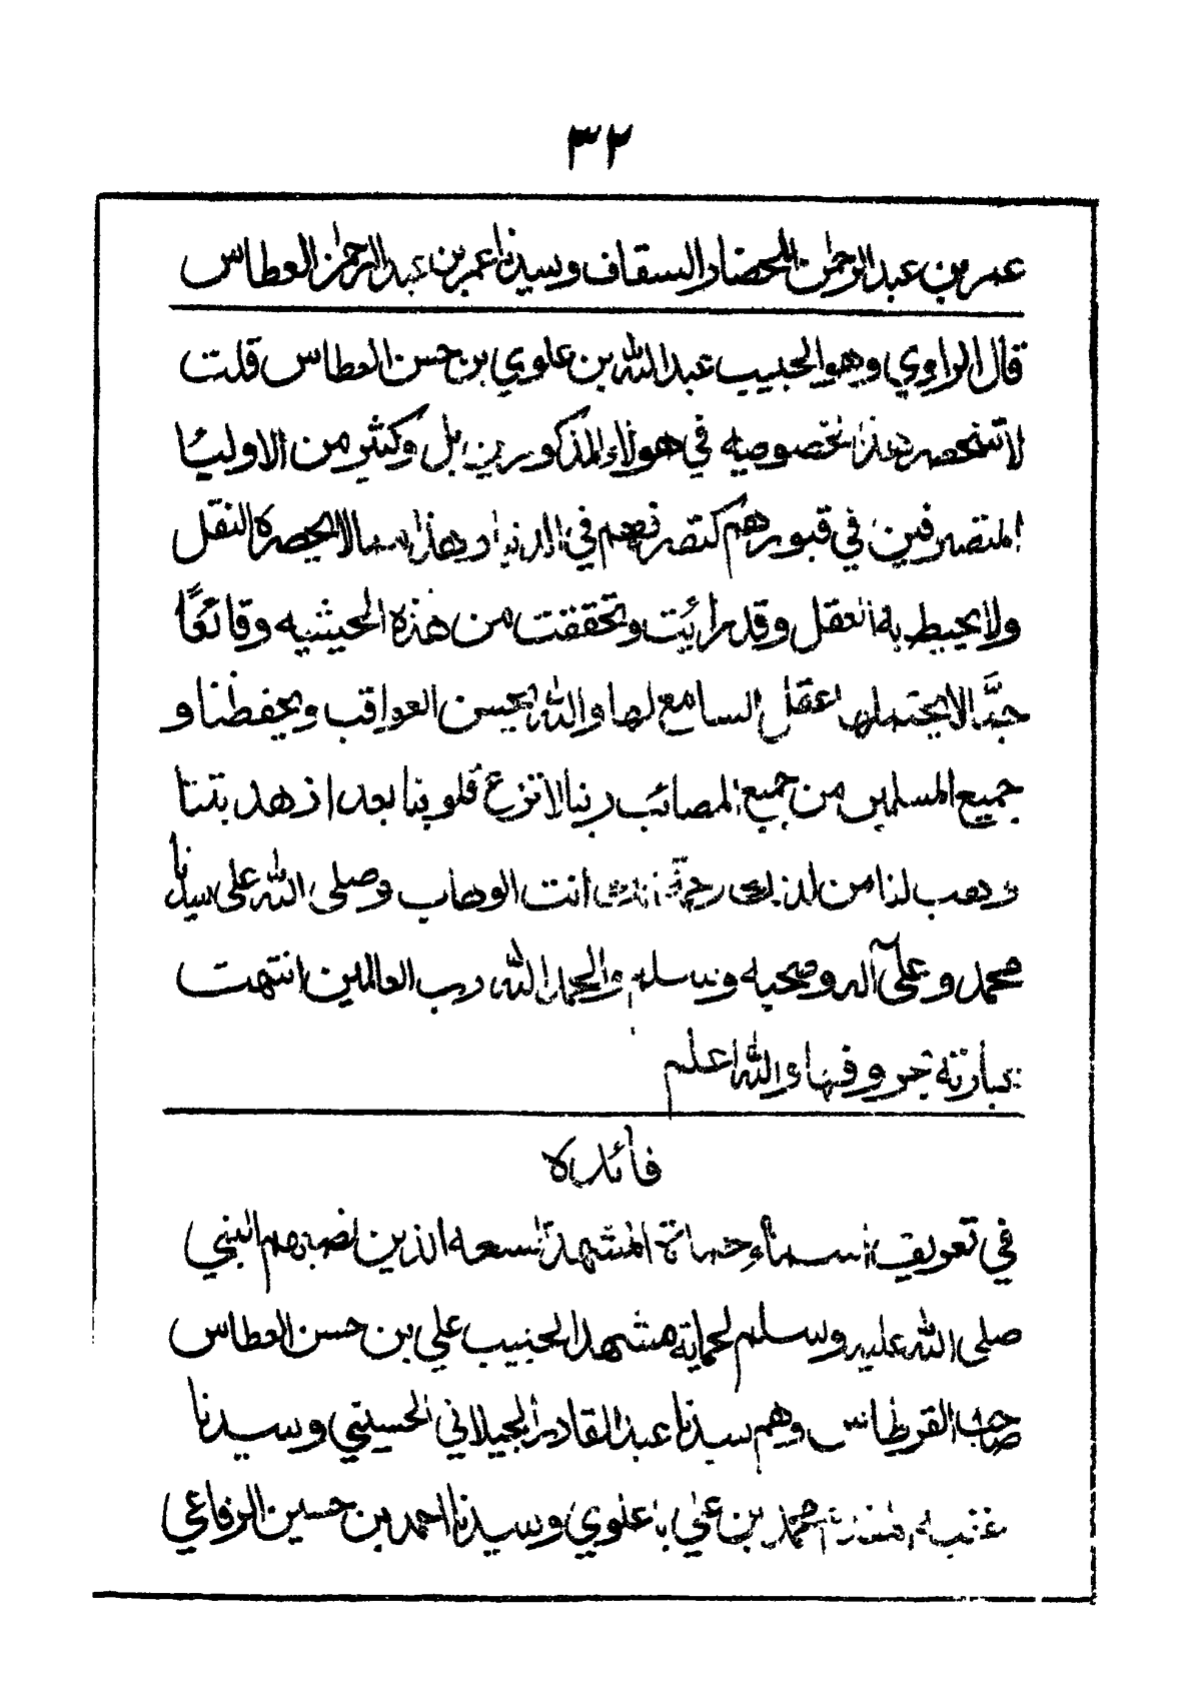 ٣٢
عمر بن عبدالرحمن المحضار السقاف وسيدنا عمر بن عبدالرحمن العطاس
قال الراوي وهو الحبيب عبدالله بن علوي بن حسن العطاس قلت
لا تنحصر هذا لخصوصيه في هولاء المذكورين بل وكثير من الاوليا
المتصرفين في قبورهم كتصرفهم في الدنيا وهذا مما لا يحصره النقل
ولا يحيط به العقل وقد رائيت وتحققت من هذه الحيثيه وقائعًا
جدَّا لا يحتملها عقل السامع لها والله يحسن العواقب ويحفظنا و
جميع المسلمين من جميع المصائب ربنا لا تزغ قلوبنا بعد اذ هديتنا
وهب لنا من لدنك رحمة انك انت الوهاب وصلى الله على سيدنا
محمد وعلى آله وصحبه وسلم والحمد لله رب العالمين انتهت
عبارته بحروفها والله اعلم
فائده
في تعريف اسماء حماة المشهد التسعه الذين نصبهم النبي
صلى الله عليه وسلم لحماية مشهد الحبيب علي بن حسن العطاس
صاحب القرطاس وهم سيدنا عبدالقادر الجيلاني الحسيني وسيدنا
محمد بن علي با علوي وسيدنا احمد بن حسين الرفاعي